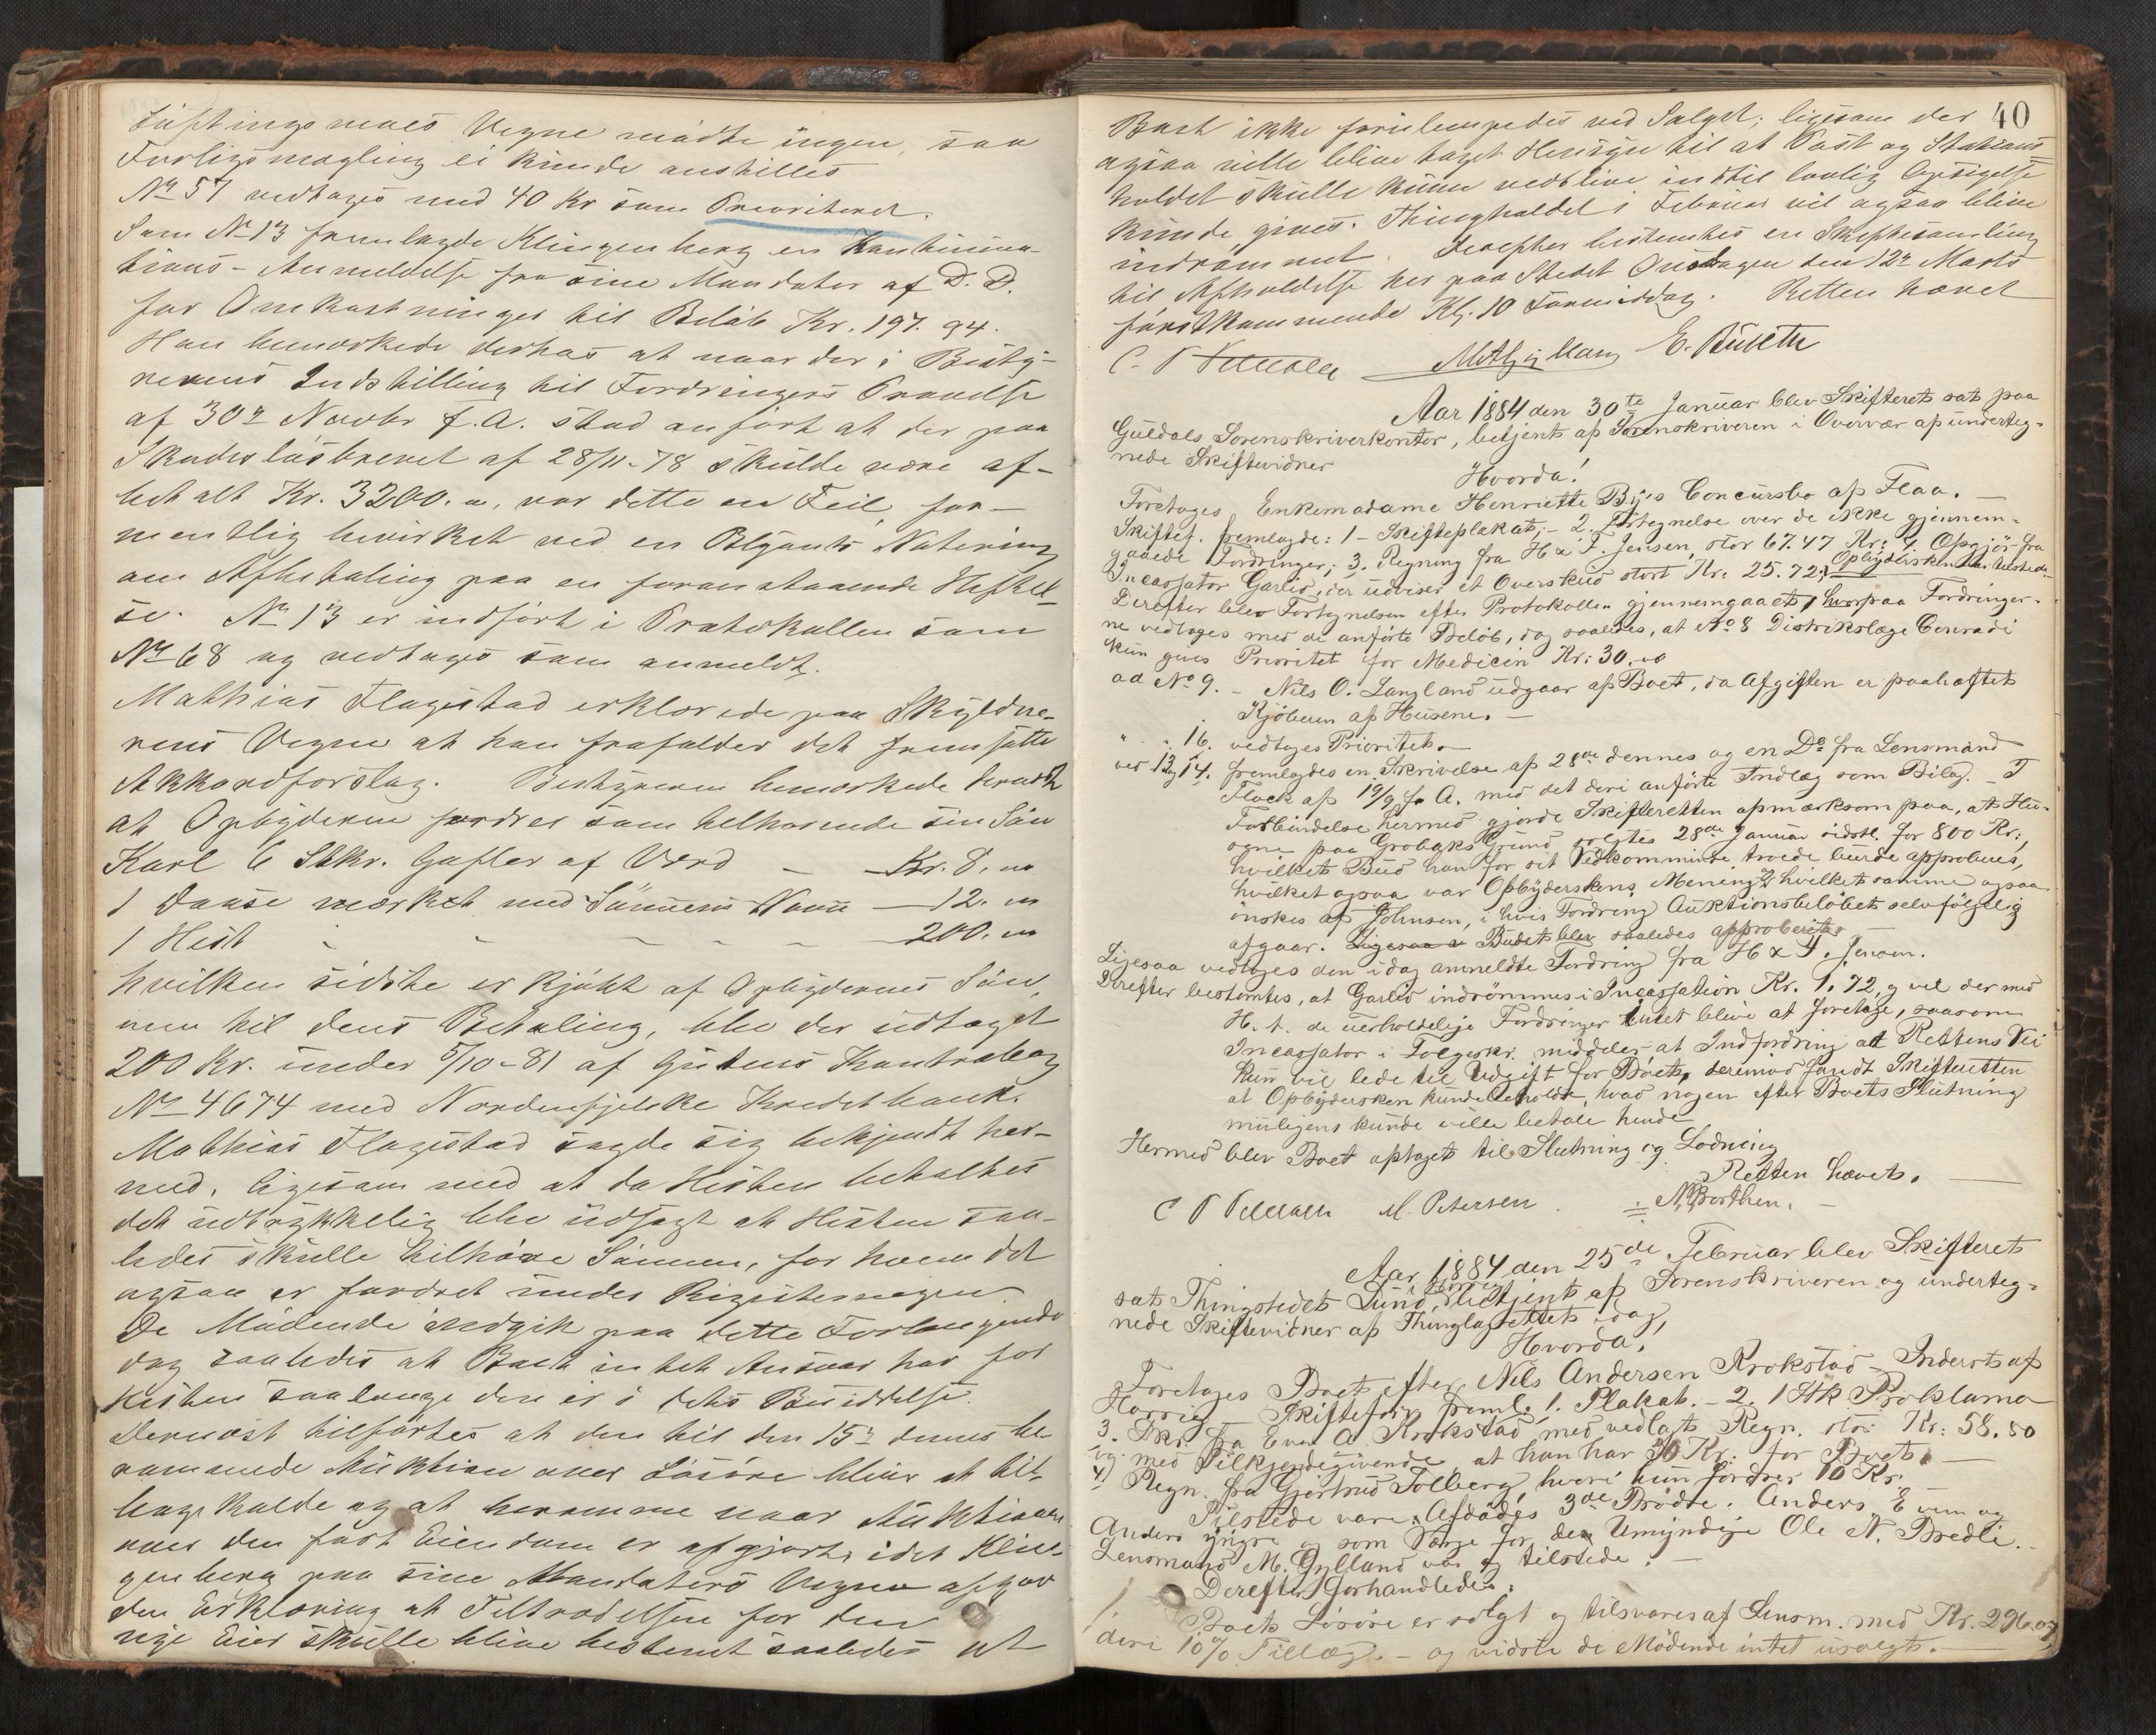 Vegne mødte ingen, saa
Forligsmægling ei kunde anstilles
No 57 vedtages med 40 Kr som Prioriteret.
Som No 13 fremlagde Klingenberg en Kontinua-
tions-Anmeldelse fra sine Mandater af D. D.
for Omkostninger til Beløb Kr. 197. 94.
Han bemærkede derhos at naar der i Besty-
rerens Indstilling til Fordringers Prøvelse
af 30te Novbr f. A. stod anført at der paa
Skadesløsbrevet af 28/11-78 skulde være af-
betalt Kr. 3200. „, var dette en Feil, for-
mentlig bevirket ved en Blyants Notering
om Afbetaling paa en foranstaaende Heftel-
se. No 13 er indført i Protokollen som
No 68 og vedtages som anmeldt.
Mathias Flagstad erklærede paa Skyldne-
rens Vegne at han frafalder det fremsatte
Akkordforslag. Bestyreren bemærkede
at Opbyderen fordrer som tilhørende sin Søn
Karl 6 Stkr. Gafler af Værd – Kr. 8. „
1 Daase mærket med Sønnens Navn – 12. „
1 Hest – – – – – 200. „
hvilken sidste er kjøbt af Opbyderens Søn,
men til dens Betaling, blev der udtaget
200 Kr. under 5/10-81 af Gutens Kontrabog
No 4674 med Nordenfjelske Kreditbank.
Mathias Flagstad sagde sig bekjendt her-
med, ligesom med at da Hesten betaltes
det udtrykkelig blev udsagt at Hesten saa-
ledes skulle tilhøre Sønnen, for hvem det
ogsaa er fordret under Registreringen
De Mødende indgik paa dette Forlangende
dog saaledes at Boet intet Ansvar har for
Hesten saalænge den er i dets Besiddelse.
Dernæst tilførtes at den til den 15de dennes be
rammede Auktion over Løsøre bliver at til-
bagekalde og at beramme naar Auktionen
over den faste Eiendom er afgjort, idet Klin-
genberg paa sine Mandaters Vegne afgav
den Erklæring at Tiltrædelsen for den
nye Eier skulle blive bestemt saaledes at
40
Boet ikke forulempedes ved Salget; ligesom der
ogsaa ville blive taget Hensyn til at Post og Stations
holdet skulle kunne vedblive indtil lovlig Opsigelse
kunde gives. Thingholdet i Februar vil ogsaa blive
indrømmet. Derefter bestemtes en Skiftesamling
til Afholdelse her paa Stedet Onsdagen den 12te Marts
førstkommende Kl. 10 Formiddag. Retten hævet
Aar 1884 den 30te Januar blev Skifteret sat paa
Guldals Sorenskriverkontor, betjent af Sorenskriveren i Overvær af underteg-
nede Skiftevidner
Hvorda!
Foretoges Enkemadame Henriette Byes Concursbo af Flaa. –
Skiftef. fremlagde: 1 – Skifteplakat; – 2. Fortegnelse over de ikke gjennem-
gaaede Fordringer; 3. Regning fra H & F. Jensen, stor 67.47 Kr; 4. Opgjør fra
Incassator Garlid, der udviser et Overskud stort Kr. 25.72. Opbydersken tilstede.
Derefter blev Fortegnelsen efter Protokollen gjennemgaaet, hvorpaa Fordringer-
ne vedtoges med de anførte Beløb, dog saaledes, at No 8 Distriktslæge Conradi
kun gives Prioritet for Medicin Kr: 30.„
ad No 9. – Nils O. Langland udgaar af Boet, da Afgiften er paahæftet
Kjøberen af Husene. –
" " 16. vedtoges Prioritet. –
ved 13 og 14. fremlagdes en Skrivelse af 28de dennes og en Do fra Lensmand
Flock af 19/9 f. A. med det deri anførte Indlæg som Bilag. – I
Forbindelse hermed gjorde Skifteretten opmærksom paa, at Hu-
sene paa Grobaks Grund solgtes 28de Januar sidstl. for 800 Kr.,
hvilket Bud han for sit Vedkommende troede burde approberes,
hvilket ogsaa var Opbyderskens Mening og hvilket samme ogsaa
ønskes af Johnsen, i hvis Fordring Auktionsbeløbet selvfølgelig
afgaar. Ligesaa v Budet blev saaledes approberet. –
Ligesaa vedtoges den idag anmeldte Fordring fra H & F. Jensen.
Derefter bestemtes, at Garlid indrømmes i Incassation Kr. 1.72, og vil der med
H. t. de uerholdelige Fordringer Intet blive at foretage, saasom
Incassator i Følgeskr. meddeler at Indfordring ad Rettens Vei
kun vil lede til Udgift for Boet, derimod fandt Skifteretten
at Opbydersken kunde beholde, hvad nogen efter Boets Slutning
muligens kunde ville betale hende
Hermed blev Boet optaget til Slutning og Lodning
Retten hævet. –
M. Petersen N. Borthen. –
Aar 1884 den 25de Februar blev Skifteret
sat Thingstedet Lund i Horrig, betjent af Sorenskriveren og underteg-
nede Skiftevidner af Thinglagrettet idag,
Hvorda.
Foretoges Boet efter Nils Andersen Krokstad – Inderst af
Horrig Skifteforv. freml. 1. Plakat. – 2. 1 Stk Proklama
3. Skr. fra Even A. Krokstad med vedlagt Regn. stor Kr. 58.80
og med Tilkjendegivende at han har 30 Kr. for Boet. –
4) Regn. fra Gjertrud Solberg, hvori hun fordrer 10 Kr.
Tilstede vare Afdødes 3de Brødre: Anders, Even og
Anders yngre og som Værge for den Umyndige Ole N. Bredli. –
Lensmand M. Gylland var og tilstede. –
Derefter forhandledes:
1. Boets Løsøre er solgt og tilsvares af Lensm. med Kr. 296.07
deri 10% Tillæg. – og vidste de Mødende intet usolgt. –